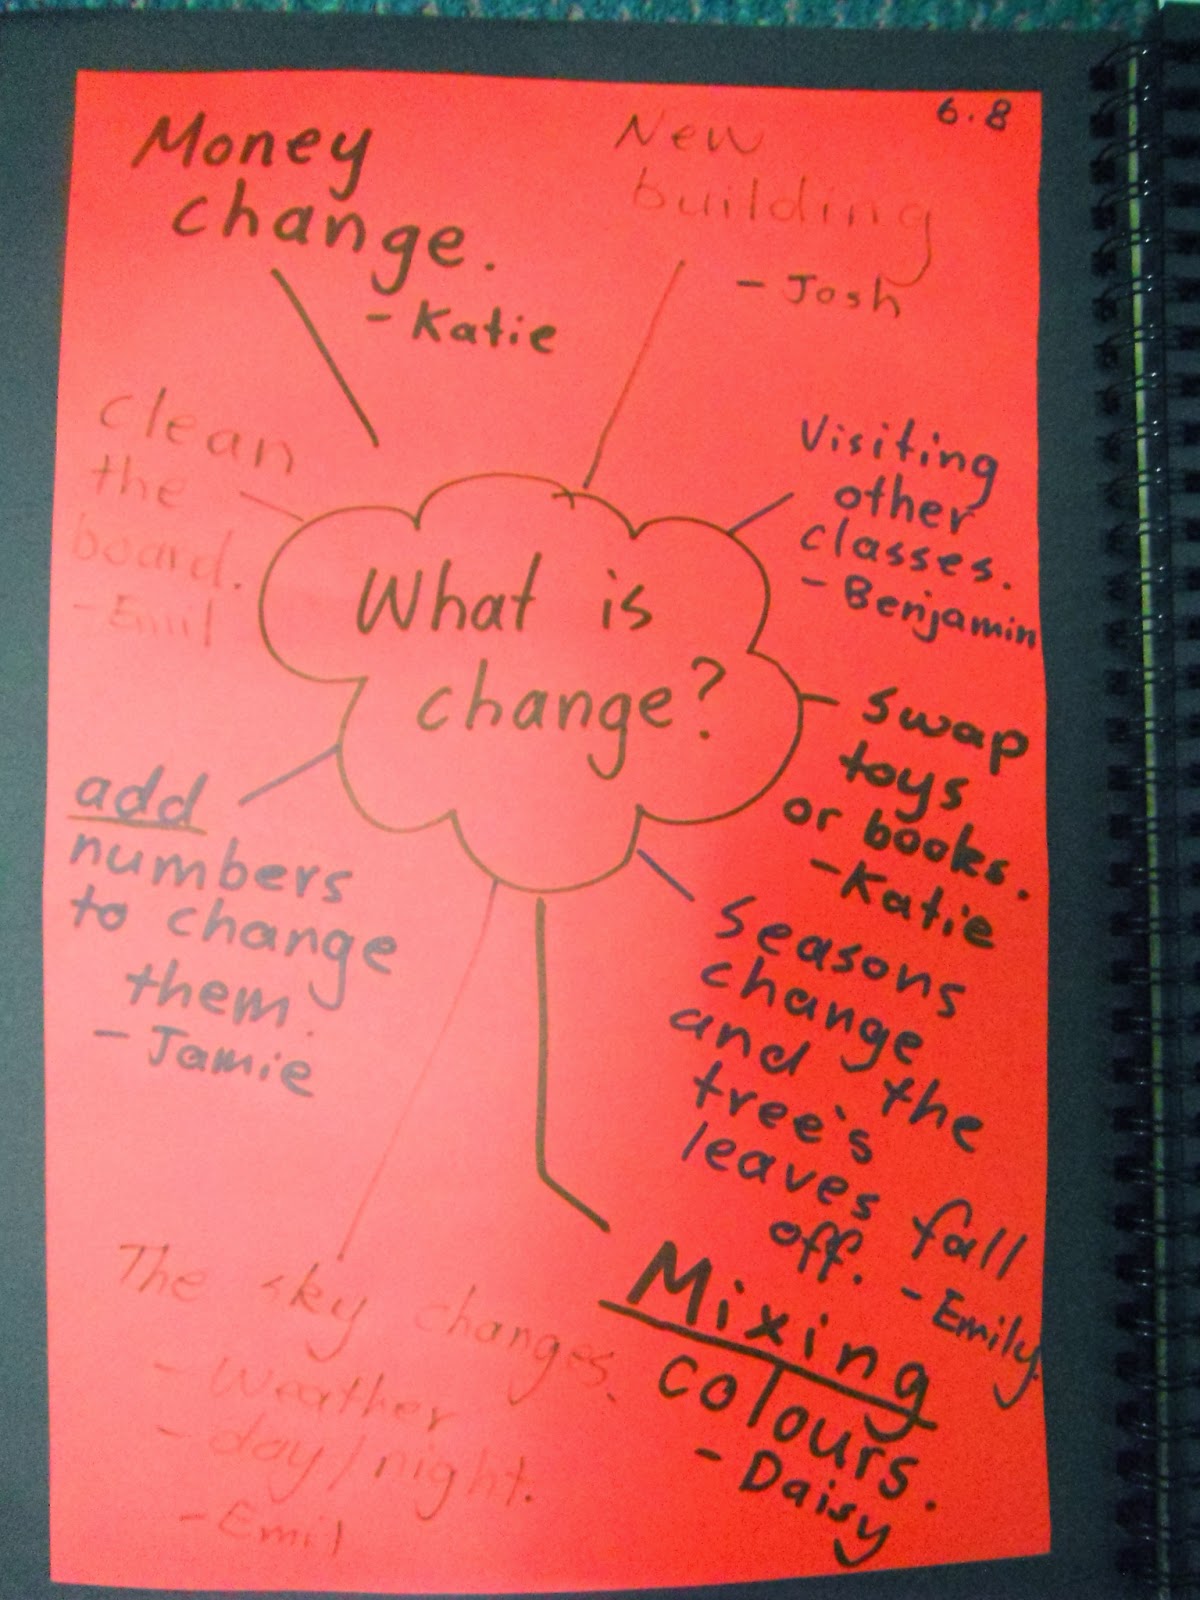 6.8
Money
change.
- Katie
New
building
- Josh
Visiting
other
classes.
- Benjamin
clean
the
board.
- Emil
What is
change?
Swap
toys
or books.
- Katie
add
numbers
to change
them.
- Jamie
Seasons
change
and the
tree's
leaves fall
off. - Emily
Mixing
colours.
- Daisy
The sky changes.
- Weather
- day/night.
- Emil